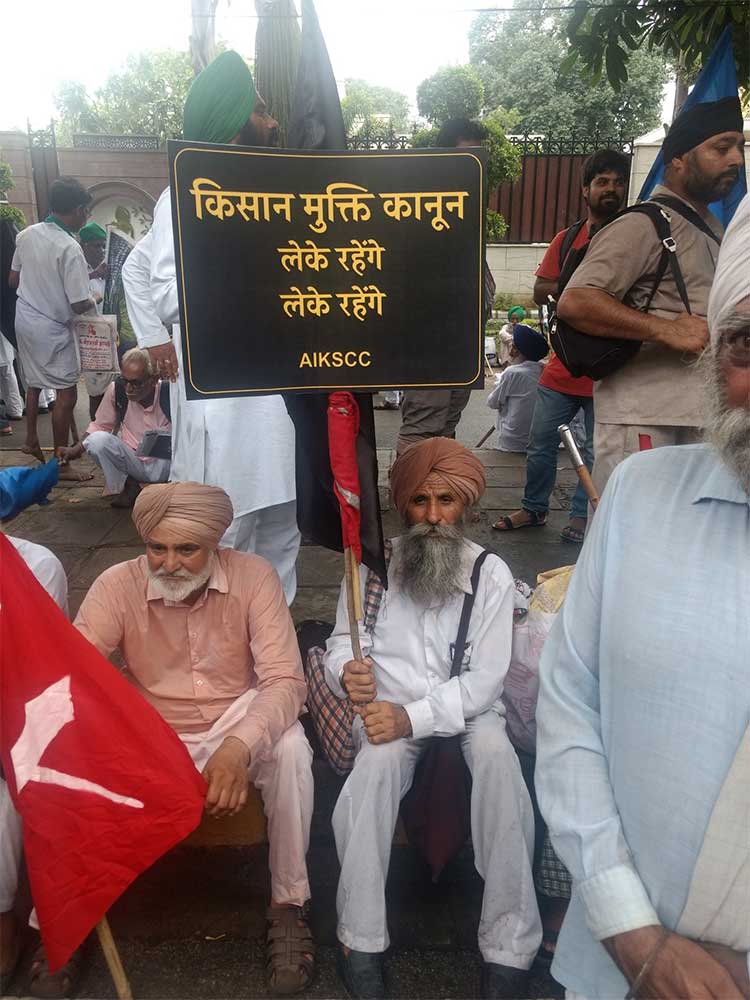 किसान मुक्ति कानून
लेके रहेंगे
लेके रहेंगे
AIKSCC